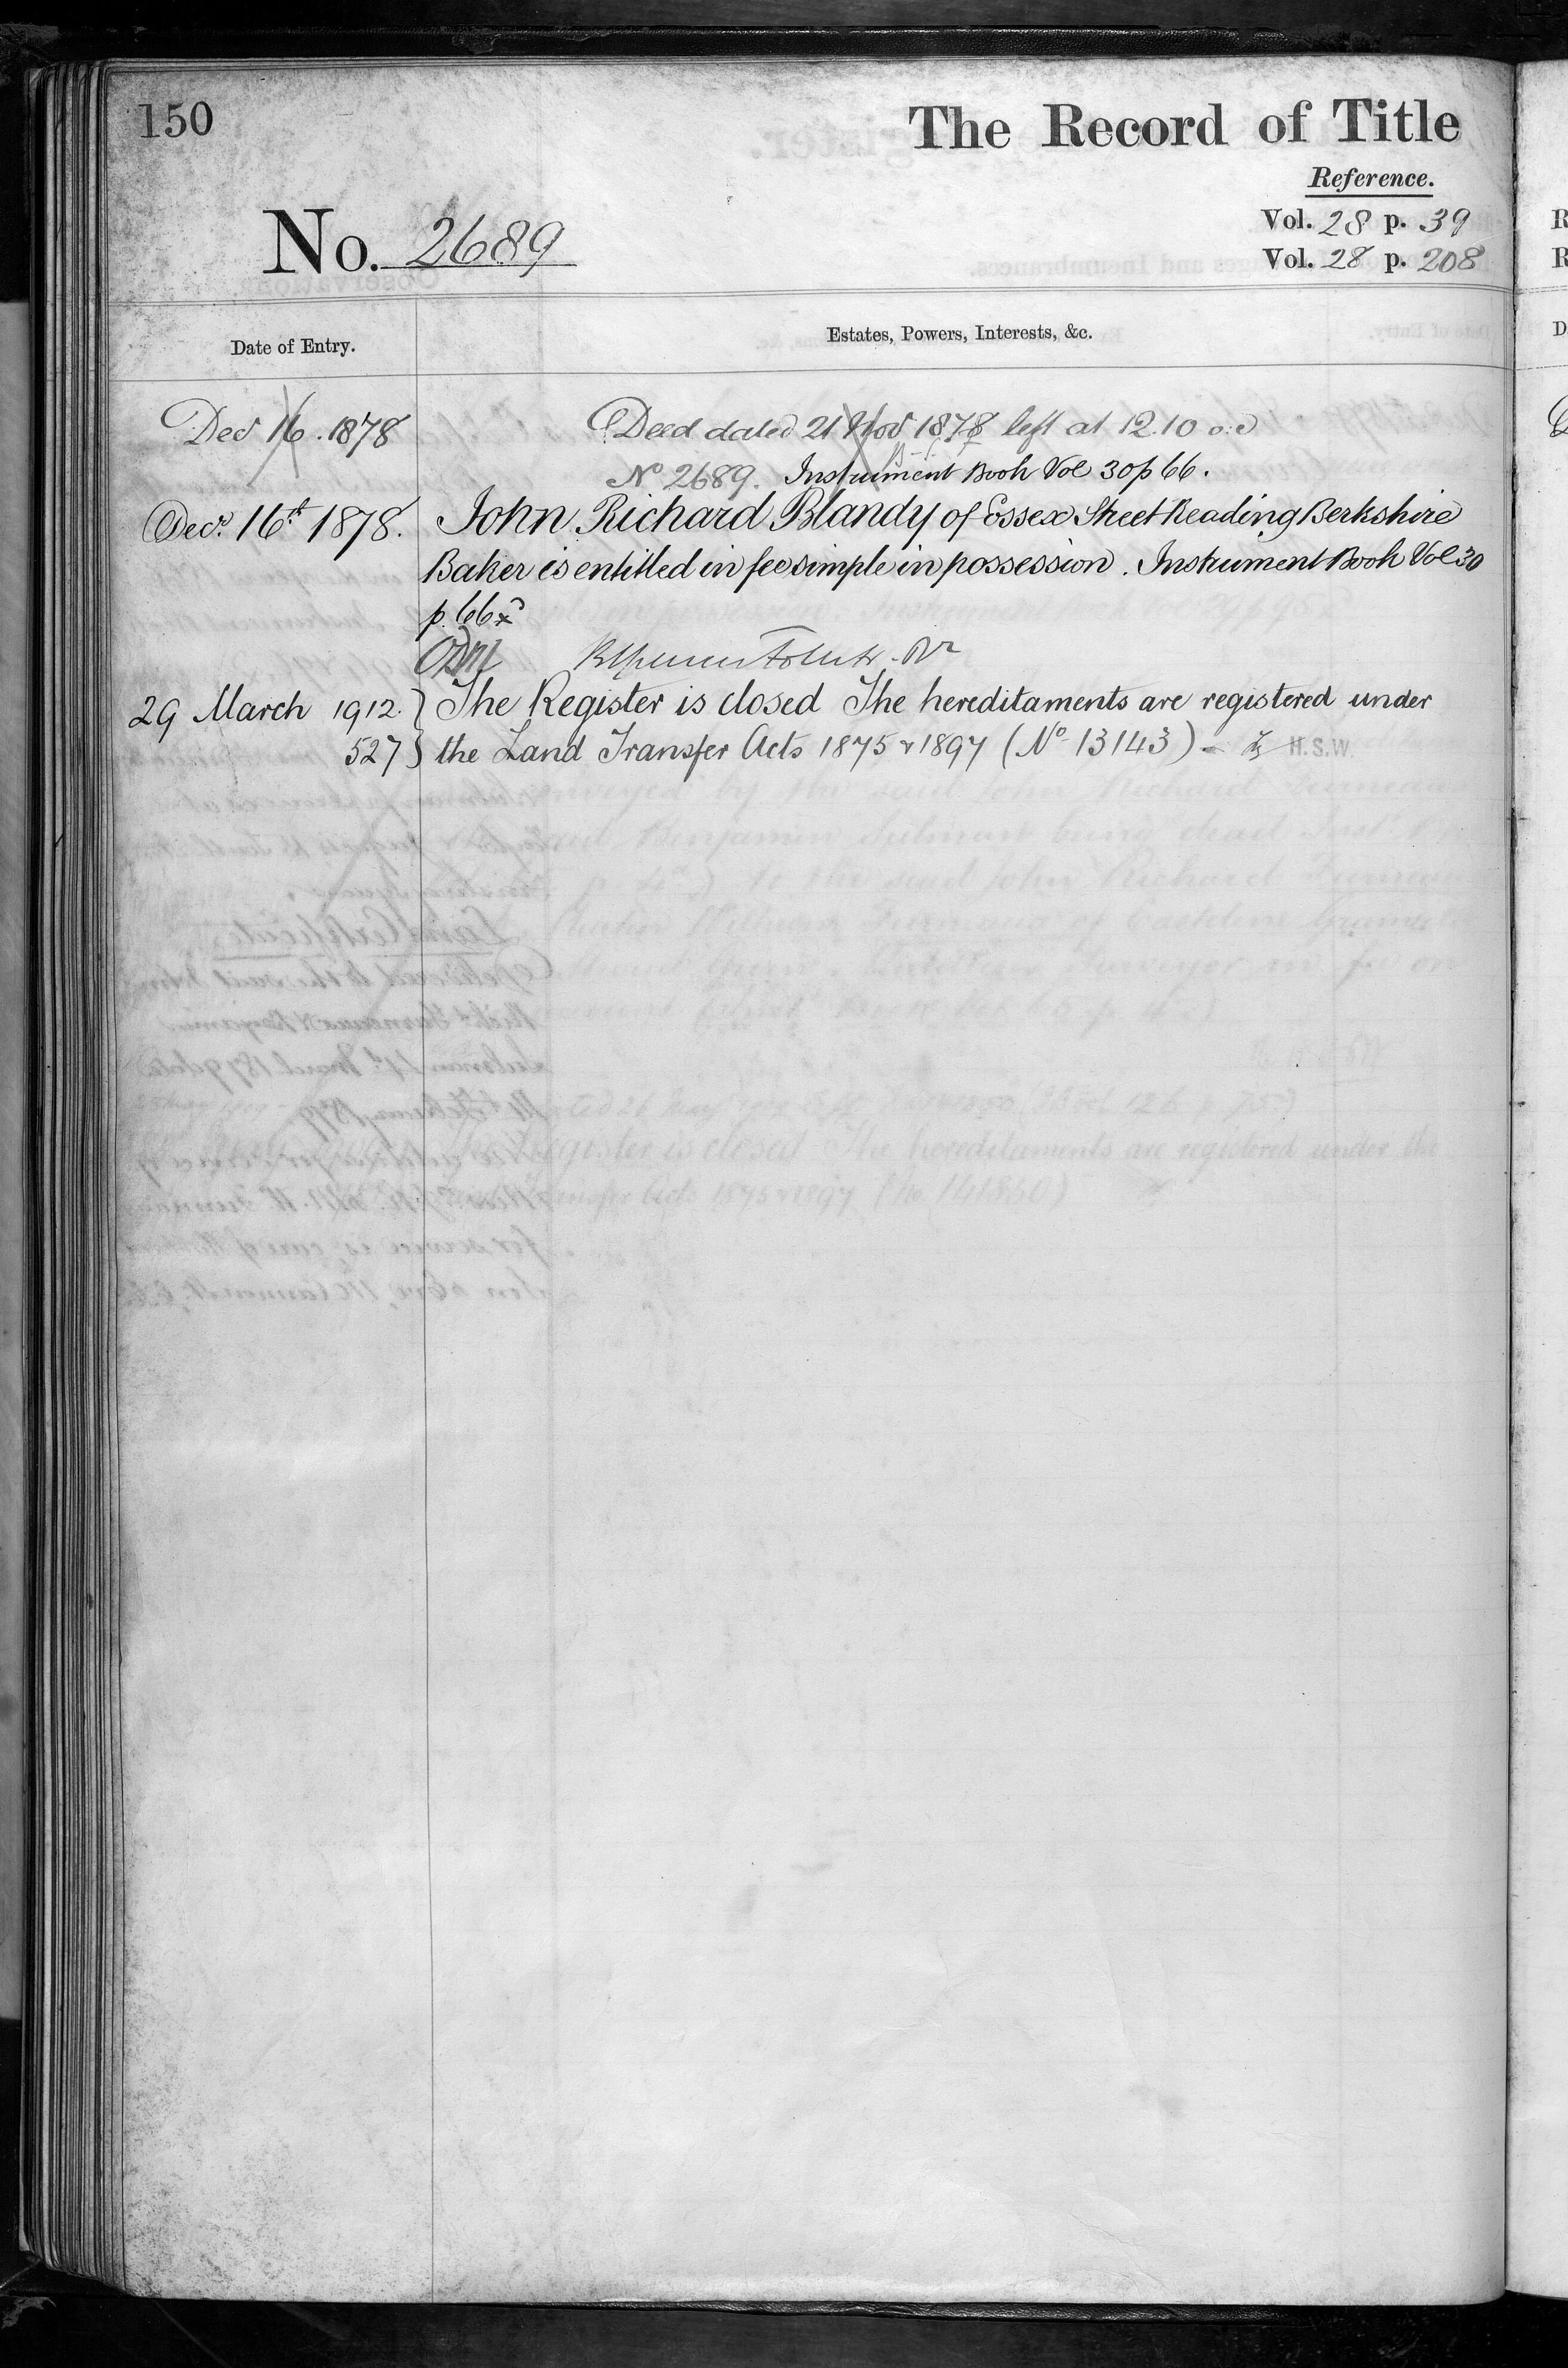 150
The Record of Title
Reference.
Vol. 28 p. 39
No. 2689
Vol. 28 p. 208
Date of Entry.
Estates, Powers, Interests, &c.
Dec 16. 1878
Deed dated 21 Nov 1878 left at 12.10 o.c
No 2689. Instrument Book Vol 30 p 66.
Decr. 16th 1878.
John Richard Blandy of Essex Street Reading Berkshire
Baker is entitled in fee simple in possession. Instrument Book Vol 30
p. 66
29 March 1912.
The Register is closed The hereditaments are registered under
527
the Land Transfer Acts 1875 & 1897 (No 13143) H.S.W.